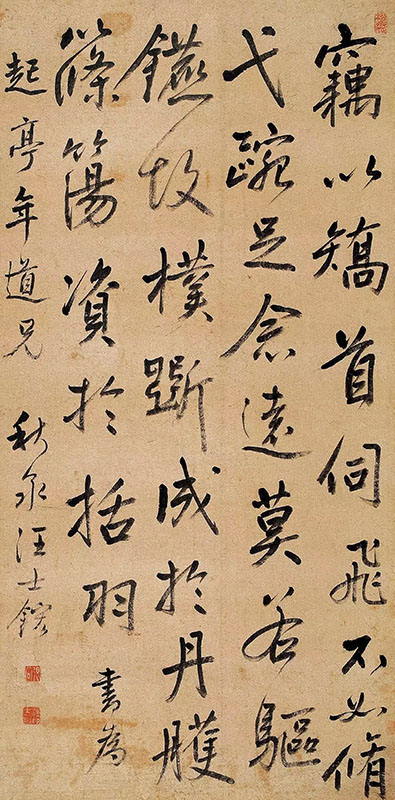 竊以矯首伺飛不如脩
弋踠足念遠莫若驅
鑣故樸斲成於丹雘
篠簜資於括羽 書為
起亭年道兄 秋泉汪士鋐